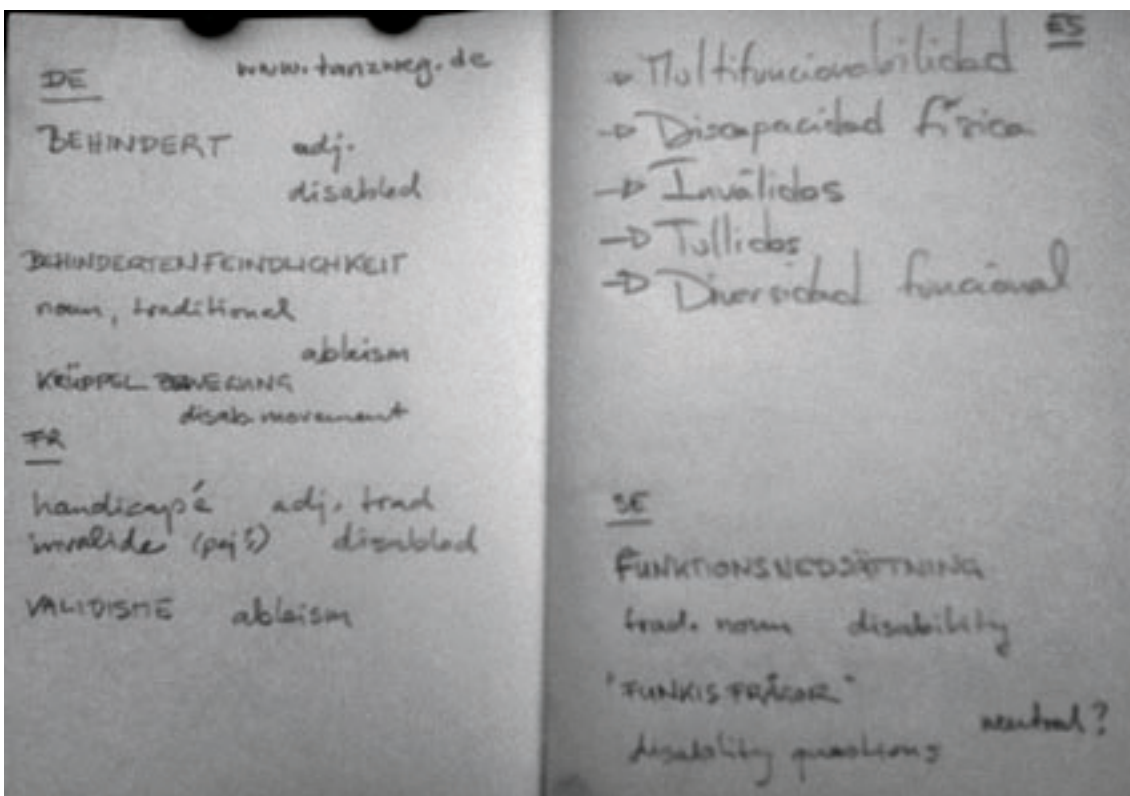 DE www.tanzweg.de
BEHINDERT adj.
disabled
BEHINDERTENFEINDLICHKEIT
noun, traditional
ableism
KRÜPPELBEWEGUNG
disab. movement
FR
handicapé adj. trad
invalide (pej?) disabled
VALIDISME ableism
ES
→ Multifuncionabilidad
→ Discapacidad física
→ Inválidos
→ Tullidos
→ Diversidad funcional
SE
FUNKTIONSNEDSÄTTNING
trad. noun disability
"FUNKISFRÅGOR"
neutral?
disability questions